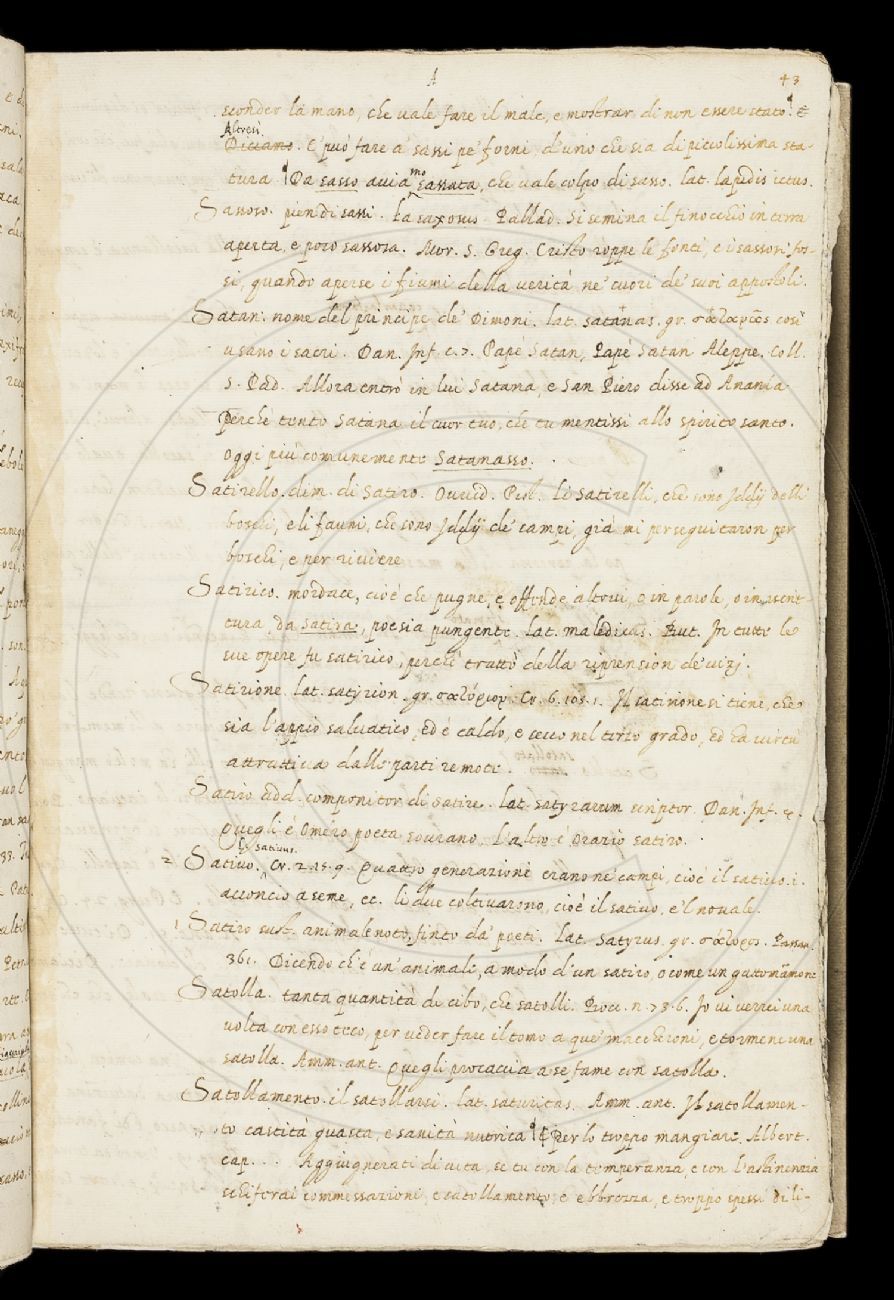 A 43
sconder la mano, che uale fare il male, e mostrar di non essere stato. E
Altresi
Diciamo. E' può fare a' sassi pe' forni, d'uno che sia di piccolissima sta-
tura. Da sasso auiamo sassata, che uale colpo di sasso. lat. lapidis ictus.
Sassoso. pien di sassi. la saxosus. Pallad. Si semina il finocchio in terra
aperta, e poco sassosa. Mor. S. Greg. Cristo roppe le fonti, e i sassosi fos-
si, quando aperse i fiumi della verità ne' cuori de' suoi appostoli.
Satan. nome del principe de' Dimoni. lat. satanas. gr. σατανᾶς così
usano i sacri. Dan. Inf. c. 7. Papè Satan, Papè Satan Aleppe. Coll.
S. Pad. Allora entrò in lui Satana, e San Piero disse ad Anania.
Perchè tentò Satana il cuor tuo, che tu mentissi allo spirito santo.
Oggi più comunemente Satanasso.
Satirello. dim. di Satiro. Ouuid. Pist. li Satirelli, che sono Iddij delli
boschi, e li fauni, che sono Iddij de' campi, già mi perseguitaron per
boschi, e per riuiere
Satirico. mordace, cioè che pugne, e offende altrui, o in parole, o in iscrit-
tura, da satira, poesia pungente. lat. maledicus. But. In tutte le
sue opere fu satirico, perchè trattò della riprension de' uizj.
Satirione. lat. satyrion. gr. σατύριον. Cr. 6. 105. 1. Il satirione si tiene, che
sia l'appio saluatico, ed è caldo, e secco nel terzo grado, ed ha uirtù
attrattiua dalle parti remote.
Satiro add. componitor di satire. lat. satyrarum scriptor. Dan. Inf. 4.
Quegli è Omero poeta sourano, L'altro è Orazio satiro.
la. sativus.
2 Satiuo. Cr. 2. 15. 9. Quattro generazioni erano ne' campi, cioè il satiuo. i.
acconcio a seme, ec. li due coltiuarono, cioè il satiuo, e'l nouale.
1 Satiro sust. animale noto, finto da' poeti. lat. satyrus. gr. σάτυρος.
361. Dicendo ch'è un' animale, a modo d'un satiro, o come un gattomammone
Satolla. tanta quantità di cibo, che satolli. Bocc. n. 73. 6. Io ui uerrei una
uolta con esso teco, per ueder fare il tomo a que' maccheroni, e tormene una
satolla. Amm. ant. Quegli procaccia a se fame con satolla.
Satollamento. il satollarsi. lat. saturitas. Amm. ant. Il satollamen-
to castità guasta, e sanità nutrica E per lo troppo mangiare. Albert.
cap. . . Aggiugnerati di uita, se tu con la temperanza, e con l'astinenzia
schiferai commessazioni, e satollamento, e ebbrezza, e troppo spessi di li-